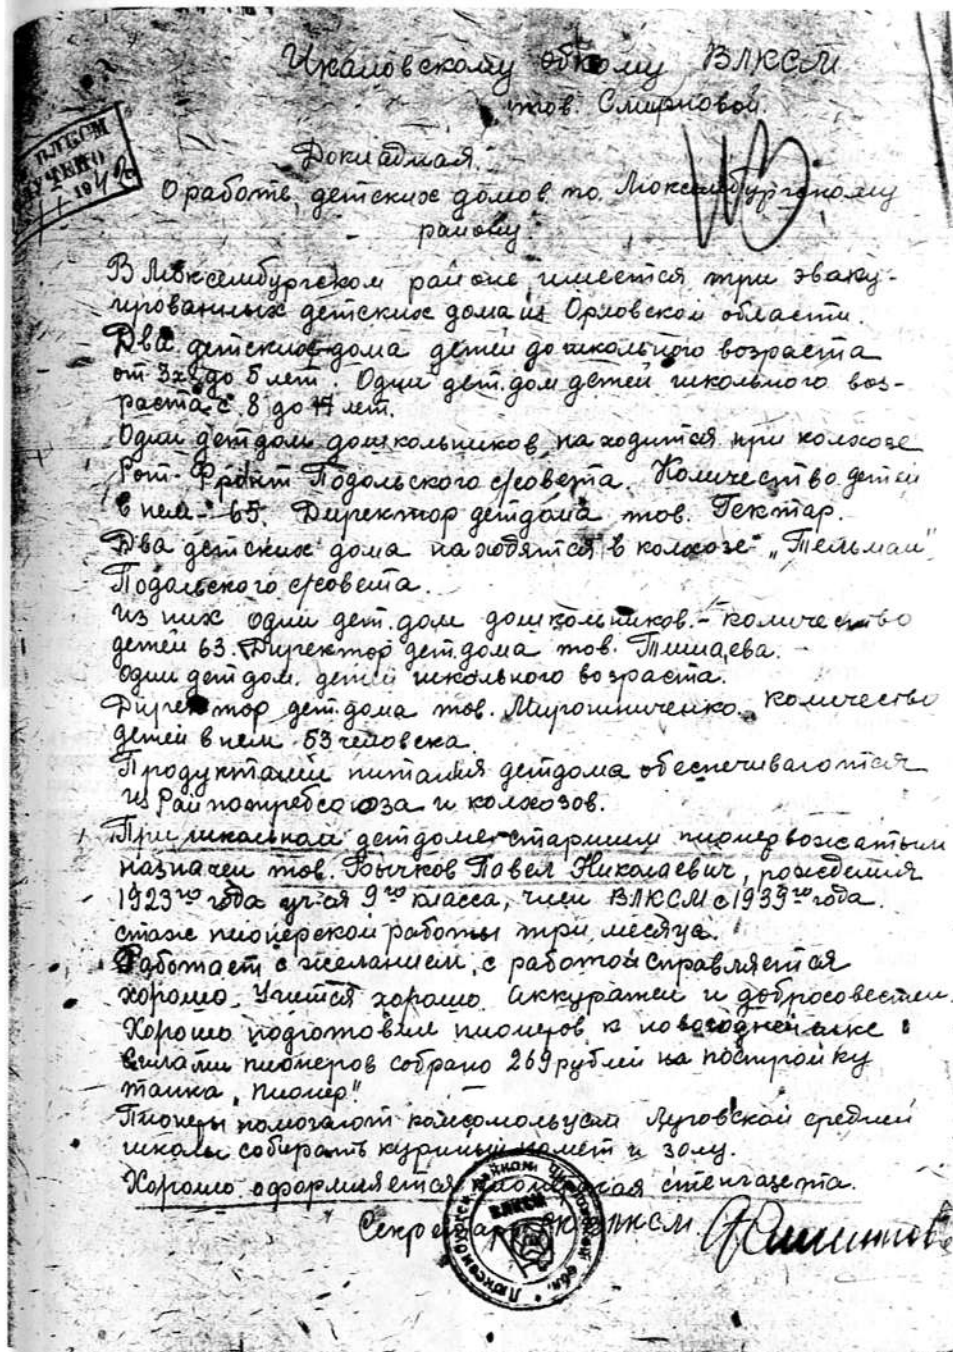 Чкаловскому обкому ВЛКСМ
тов. Смирновой
ВЛКСМ
УЧТЕНО
194
Докладная
О работе детских домов по Люксембургскому
району.
В Люксембургском районе имеется три эваку-
ированных детских дома из Орловской области.
Два детских дома детей дошкольного возраста
от 3х до 5 лет. Один дет. дом детей школьного воз-
раста с 8 до 17 лет.
Один детдом дошкольников находится при колхозе
Рот-Фронт Подольского с/совета. Количество детей
в нем - 65. Директор детдома тов. Гектар.
Два детских дома находятся в колхозе „Тельман"
Подольского с/совета.
из них один дет. дом дошкольников. - количество
детей 63. Директор дет. дома тов.
один дет дом. детей школьного возраста.
Директор дет. дома тов. Мирошниченко. Количество
детей в нем 53 человека.
Продуктами питания детдома обеспечиваются
из Райпотребсоюза и колхозов.
При школьном детдоме старшим пионервожатым
назначен тов. Бычков Павел Николаевич, рождения
1923го года уч-ся 9го класса, член ВЛКСМ с 1939го года.
стаж пионерской работы три месяца.
Работает с желанием, с работой справляется
хорошо. Учится хорошо. Аккуратен и добросовестен.
Хорошо подготовил пионеров к новогодней елке
силами пионеров собрано 269 рублей на постройку
танка „Пионер".
Пионеры помогают комсомольцам Луговской средней
школы собирать куриный помет и золу.
Хорошо оформляется пионерская стенгазета.
Секретарь РК ВЛКСМ
ВЛКСМ